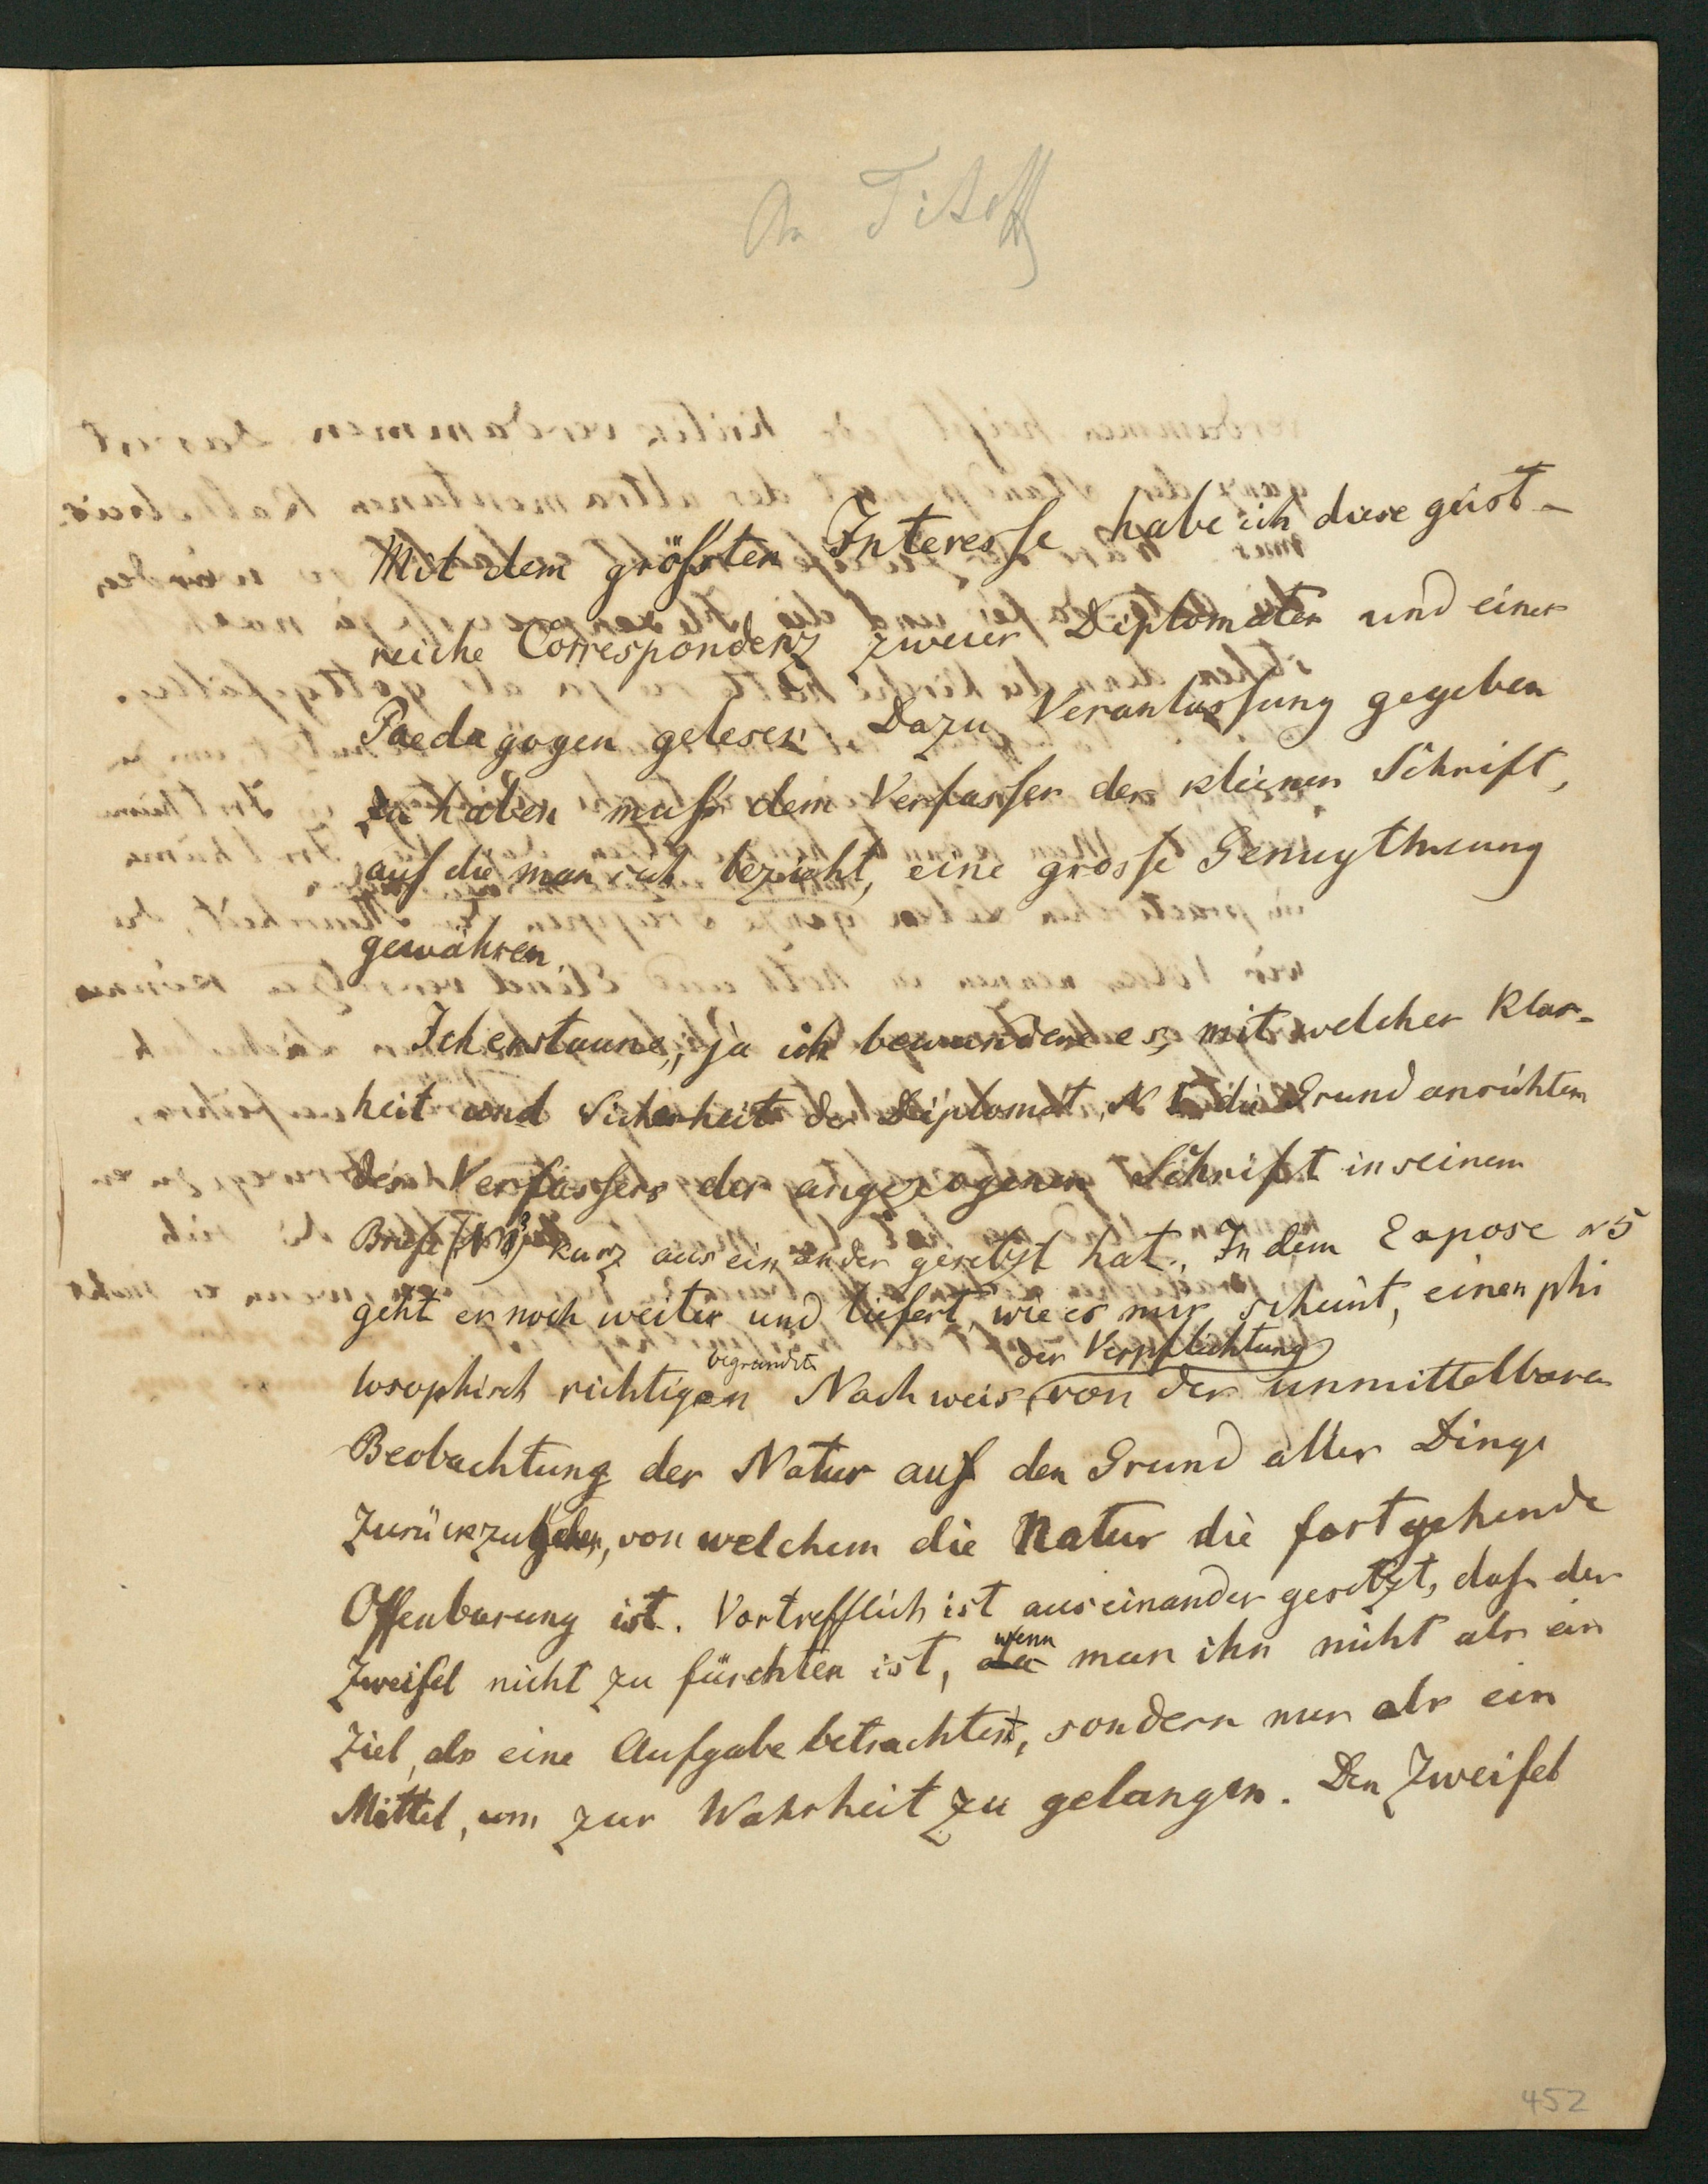 An Titoff
Mit dem größten Interesse habe ich diese geist-
reiche Correspondenz zweier Diplomaten und eines
Paedagogen gelesen. Dazu Veranlassung gegeben
zu haben muß dem Verfasser der kleinen Schrift,
auf die man sich bezieht, eine grosse Genugthuung
gewähren.
Ich erstaune, ja ich bewundere es, mit welcher Klar-
heit und Sicherheit der Diplomat, N die Grundansichten
des Verfassers der angezogenen Schrift in seinem
Briefe (N 3) kurz auseinander gesetzt hat. In dem Expose N 5
geht er noch weiter und liefert, wie es mir scheint, einen phi
losophisch richtigen begründeten Nachweis der Verpflichtung von der unmittelbaren
Beobachtung der Natur auf den Grund aller Dinge
zurückzugehen, von welchem die Natur die fortgehende
Offenbarung ist. Vortrefflich ist auseinander gesetzt, daß der
Zweifel nicht zu fürchten ist, wenn man ihn nicht als ein
Ziel, als eine Aufgabe betrachtet, sondern nur als ein
Mittel, um zur Wahrheit zu gelangen. Den Zweifel
452